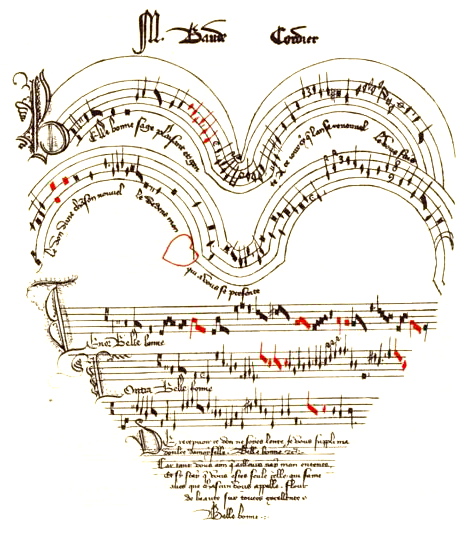 M. Baude Cordier
Elle bonne sage plaisant et gen
te A ce iour cy que lan se renouvel
le Vous fais
le don dune chanson nouvel
le Dedens mon
qui a vous se presente
Tenor Belle bonne
Contra Belle bonne
De recepvoir ce don ne soyes lente Je vous suppli ma
doulce damoyselle. Belle bonne etc.
Car tant vous aim qailleurs nay mon entente
Et si scay q vous estes seule celle qui fame
aves que chascun vous appelle. Flour
de beaute sur toutes excellente
Belle bonne